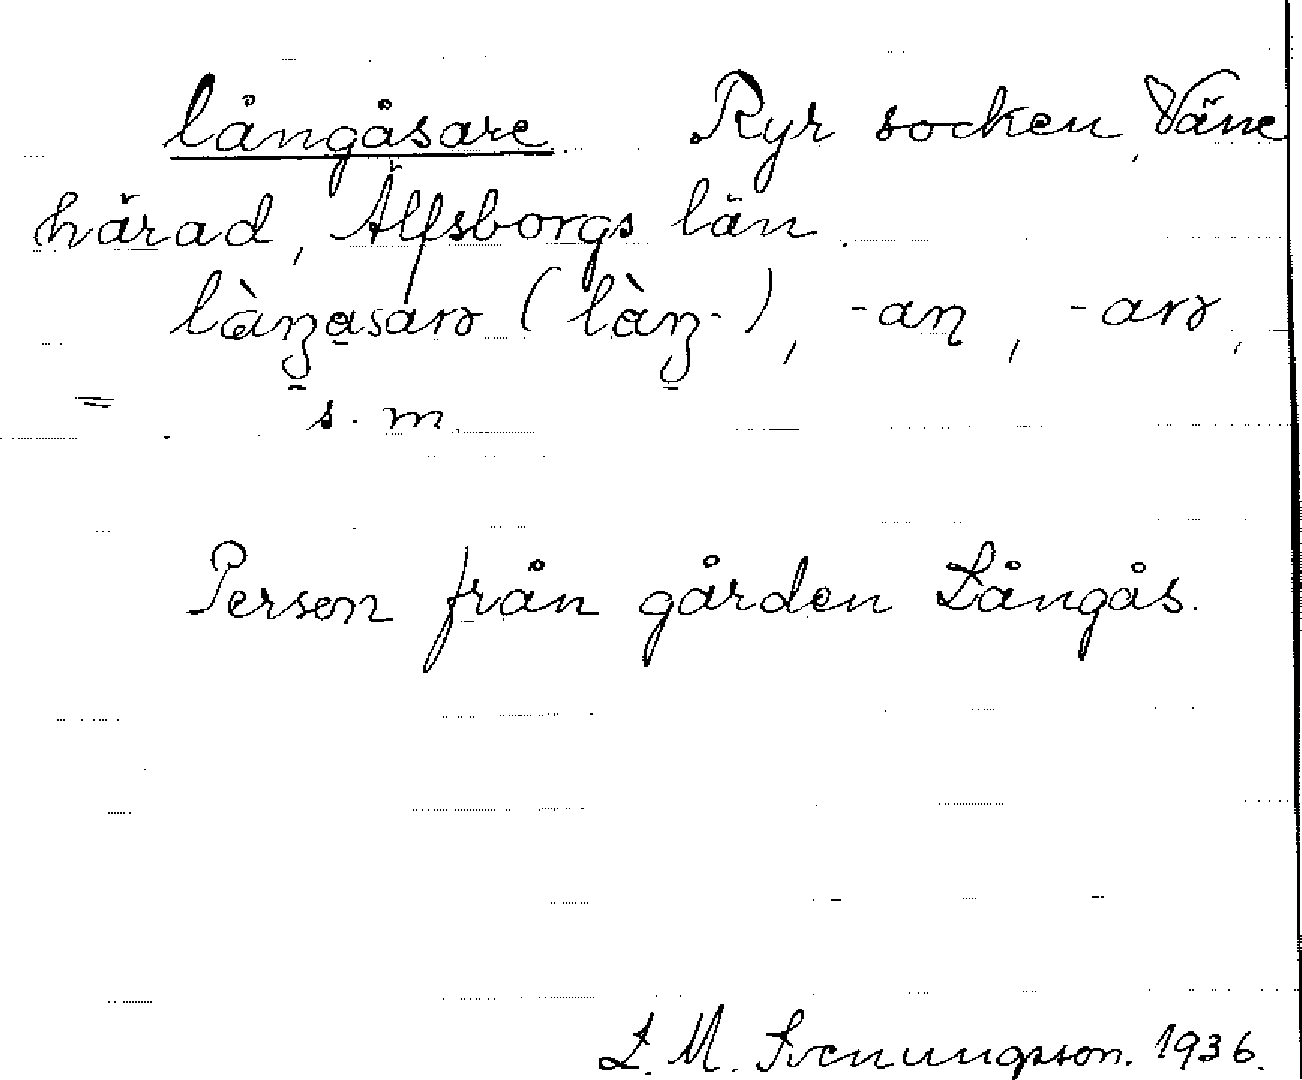 långåsare. Ryr socken, Väne
härad, Älfsborgs län.
-an, -arə,
= s. m.
Person från gården Långås.
L. M. Svenungsson. 1936.